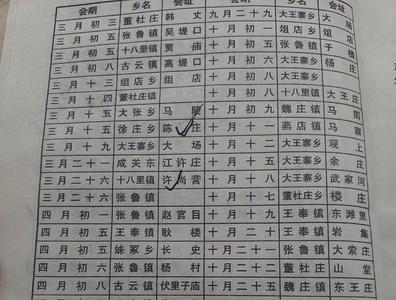 会期 乡名 会址 会期 乡名 会址
三月初三 董杜庄 韩丈 九月二十九 大王寨乡 大场
三月初五 张鲁镇 吴堤口 十月初一 俎店乡 俎店
三月初五 十八里镇 贾庙 十月初五 张鲁镇 于楼
三月初八 古云镇 高堤口 十月初六 大王寨乡 杨庄
三月十三 组店乡 组店 十月初八 大王寨乡
三月十四 董杜庄镇 十月初八 十八里镇 大王庄
三月十五 大张乡 马陵 十月初九 魏庄镇 马固
三月十五 徐庄乡 陈庄 十月十一 燕店镇 马寨
三月十九 大王寨乡 大场 十月十二 大王寨乡 观上
三月二十一 成关东 江许庄 十月十五 大王寨乡 余庄
三月二十六 十八里镇 许尚营 十月十八 大王寨乡 武家河
三月二十六 张鲁镇 十月十七 董杜庄乡 楼庄
四月初一 张鲁镇 赵官目 十月二十 王奉镇 东滩里
四月初五 王奉镇 耿楼 十月二十 王奉镇 岩集
四月初五 妹冢乡 长史 十月二十一 张鲁镇 大索庄
四月初八 张鲁镇 杨村 十月二十二 董杜庄 山堂
四月初八 古云镇 伏里子庙 十月二十二 魏庄镇 东王庄